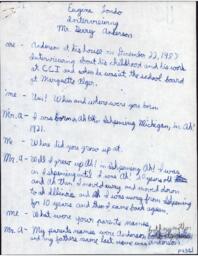 Eugene Londo
Interviewing
Mr. Gerry Anderson
me - Anderson at his house on December 22, 1987
Interviewing about his childhood and his work
at CCI and when he was at the school board
at Marquette
me - Where and where were you born
Mr. A - I was born Ah the Ishpeming Michigan in Ah'
1921.
Me - Where did you grow up at.
Mr. A - Well I grew up Ah! in Ishpeming Ah! I was
in Ishpeming until I was Ah! 10 years old
and Ah then I moved away and moved down
to Illinois and Ah I was away from Ishpeming
for 10 years and then I came back again
me - What were your parents names
Mr. A - My parents names were Anderson
and my fathers name last name was anderson